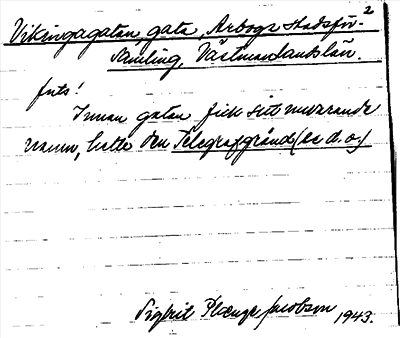 2
Vikingagatan, gata, Arboga stadsför-
samling, Västmanlandslän.
forts!
Innan gatan fick sitt nuvarande
namn, hette den Telegrafgränd (se d.o.)
Sigbrit Plænge Jacobson 1943.